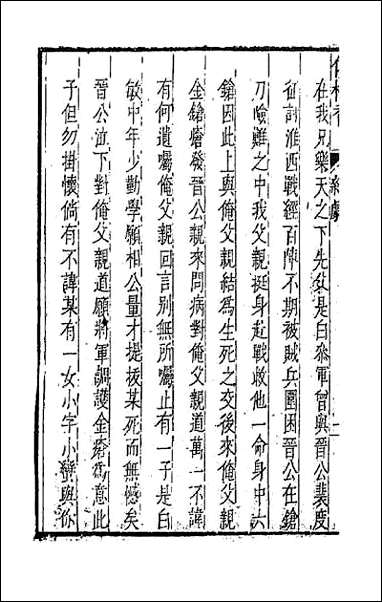 在我兄樂天之下先父是白參軍曾與晉公裴度
征討淮西戰經百陣不期被賊兵圍困晉公在鎗
刀嶮難之中我父親挺身赴戰收他一命身中六
鎗因此上與俺父親結爲生死之交後來俺父親
金鎗瘡發晉公親來問病對俺父親道萬一不諱
有何遺囑俺父親回言別無所囑止有一子是白
敏中年少勤學願相公量才提拔某死而無憾矣
晉公泣下對俺父親道願將軍調護金瘡爲意此
子但勿掛懷倘有不諱某有一女小字小蠻與你